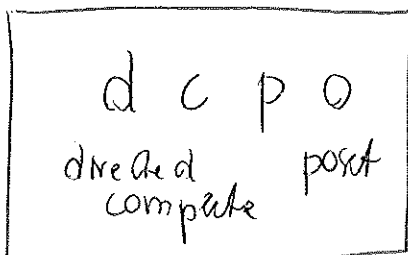 d c p o
directed poset
complete